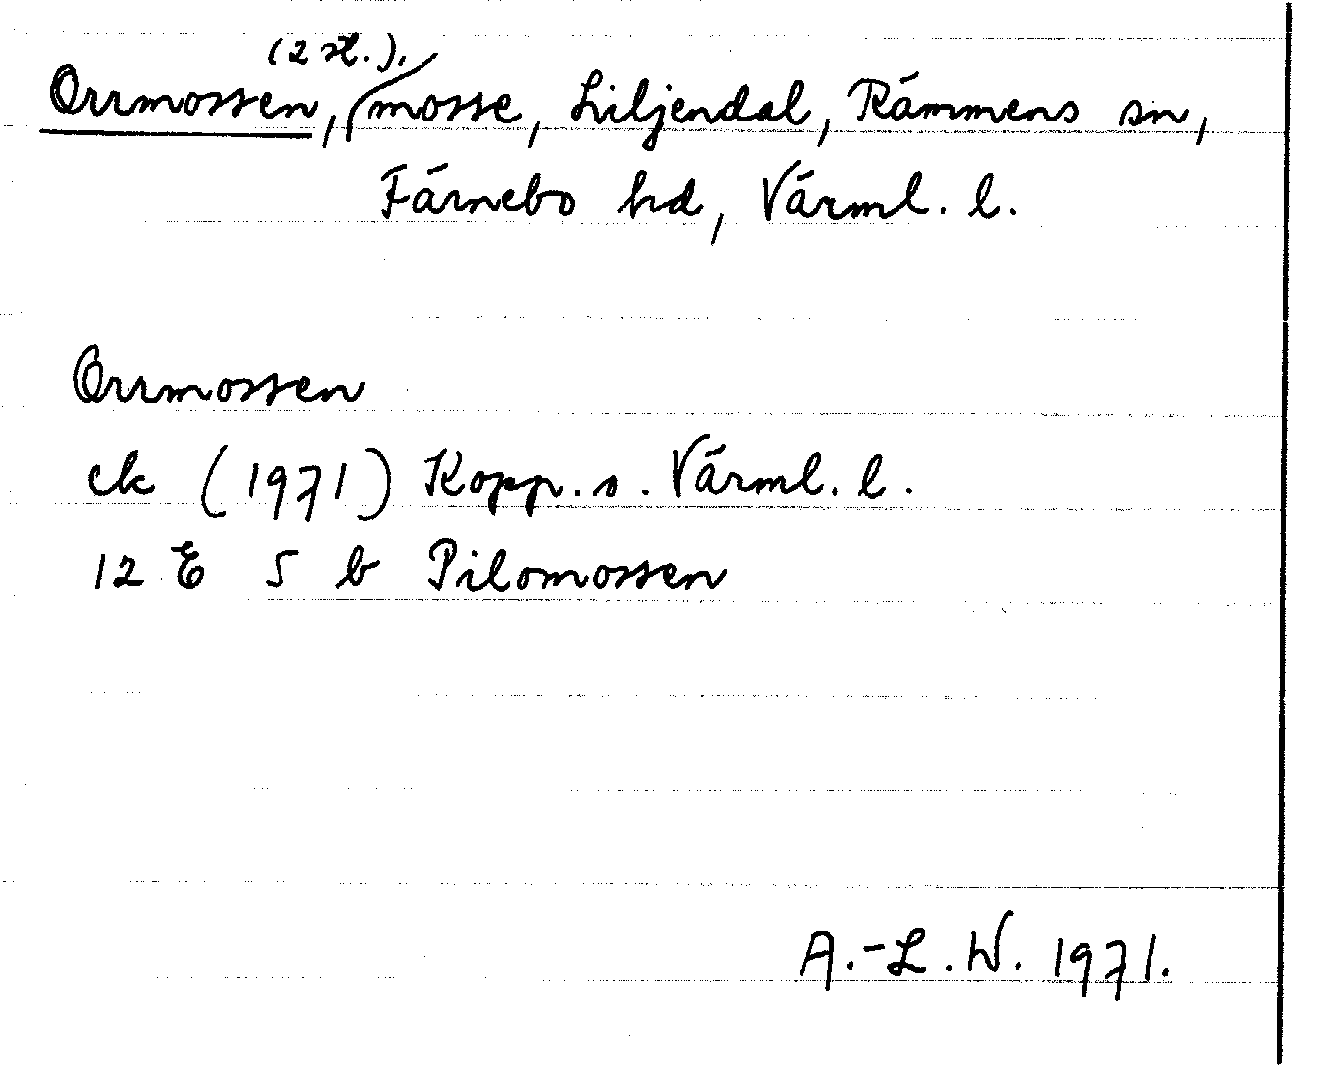 (2 st.).
Orrmossen, mosse, Liljendal, Rämmens sn,
Färnebo hd, Värml. l.
Orrmossen
ek (1971) Kopp. s. Värml. l.
12 E 5 b Pilomossen
A.-L. W. 1971.